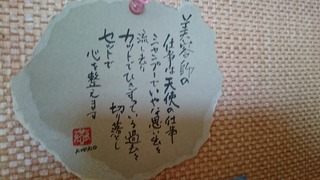 美容師の
仕事は天使の仕事
シャンプーでいやな思い出を
流し去り
カットでひきずっている過去を
切り落とし
セットで
心を整えます